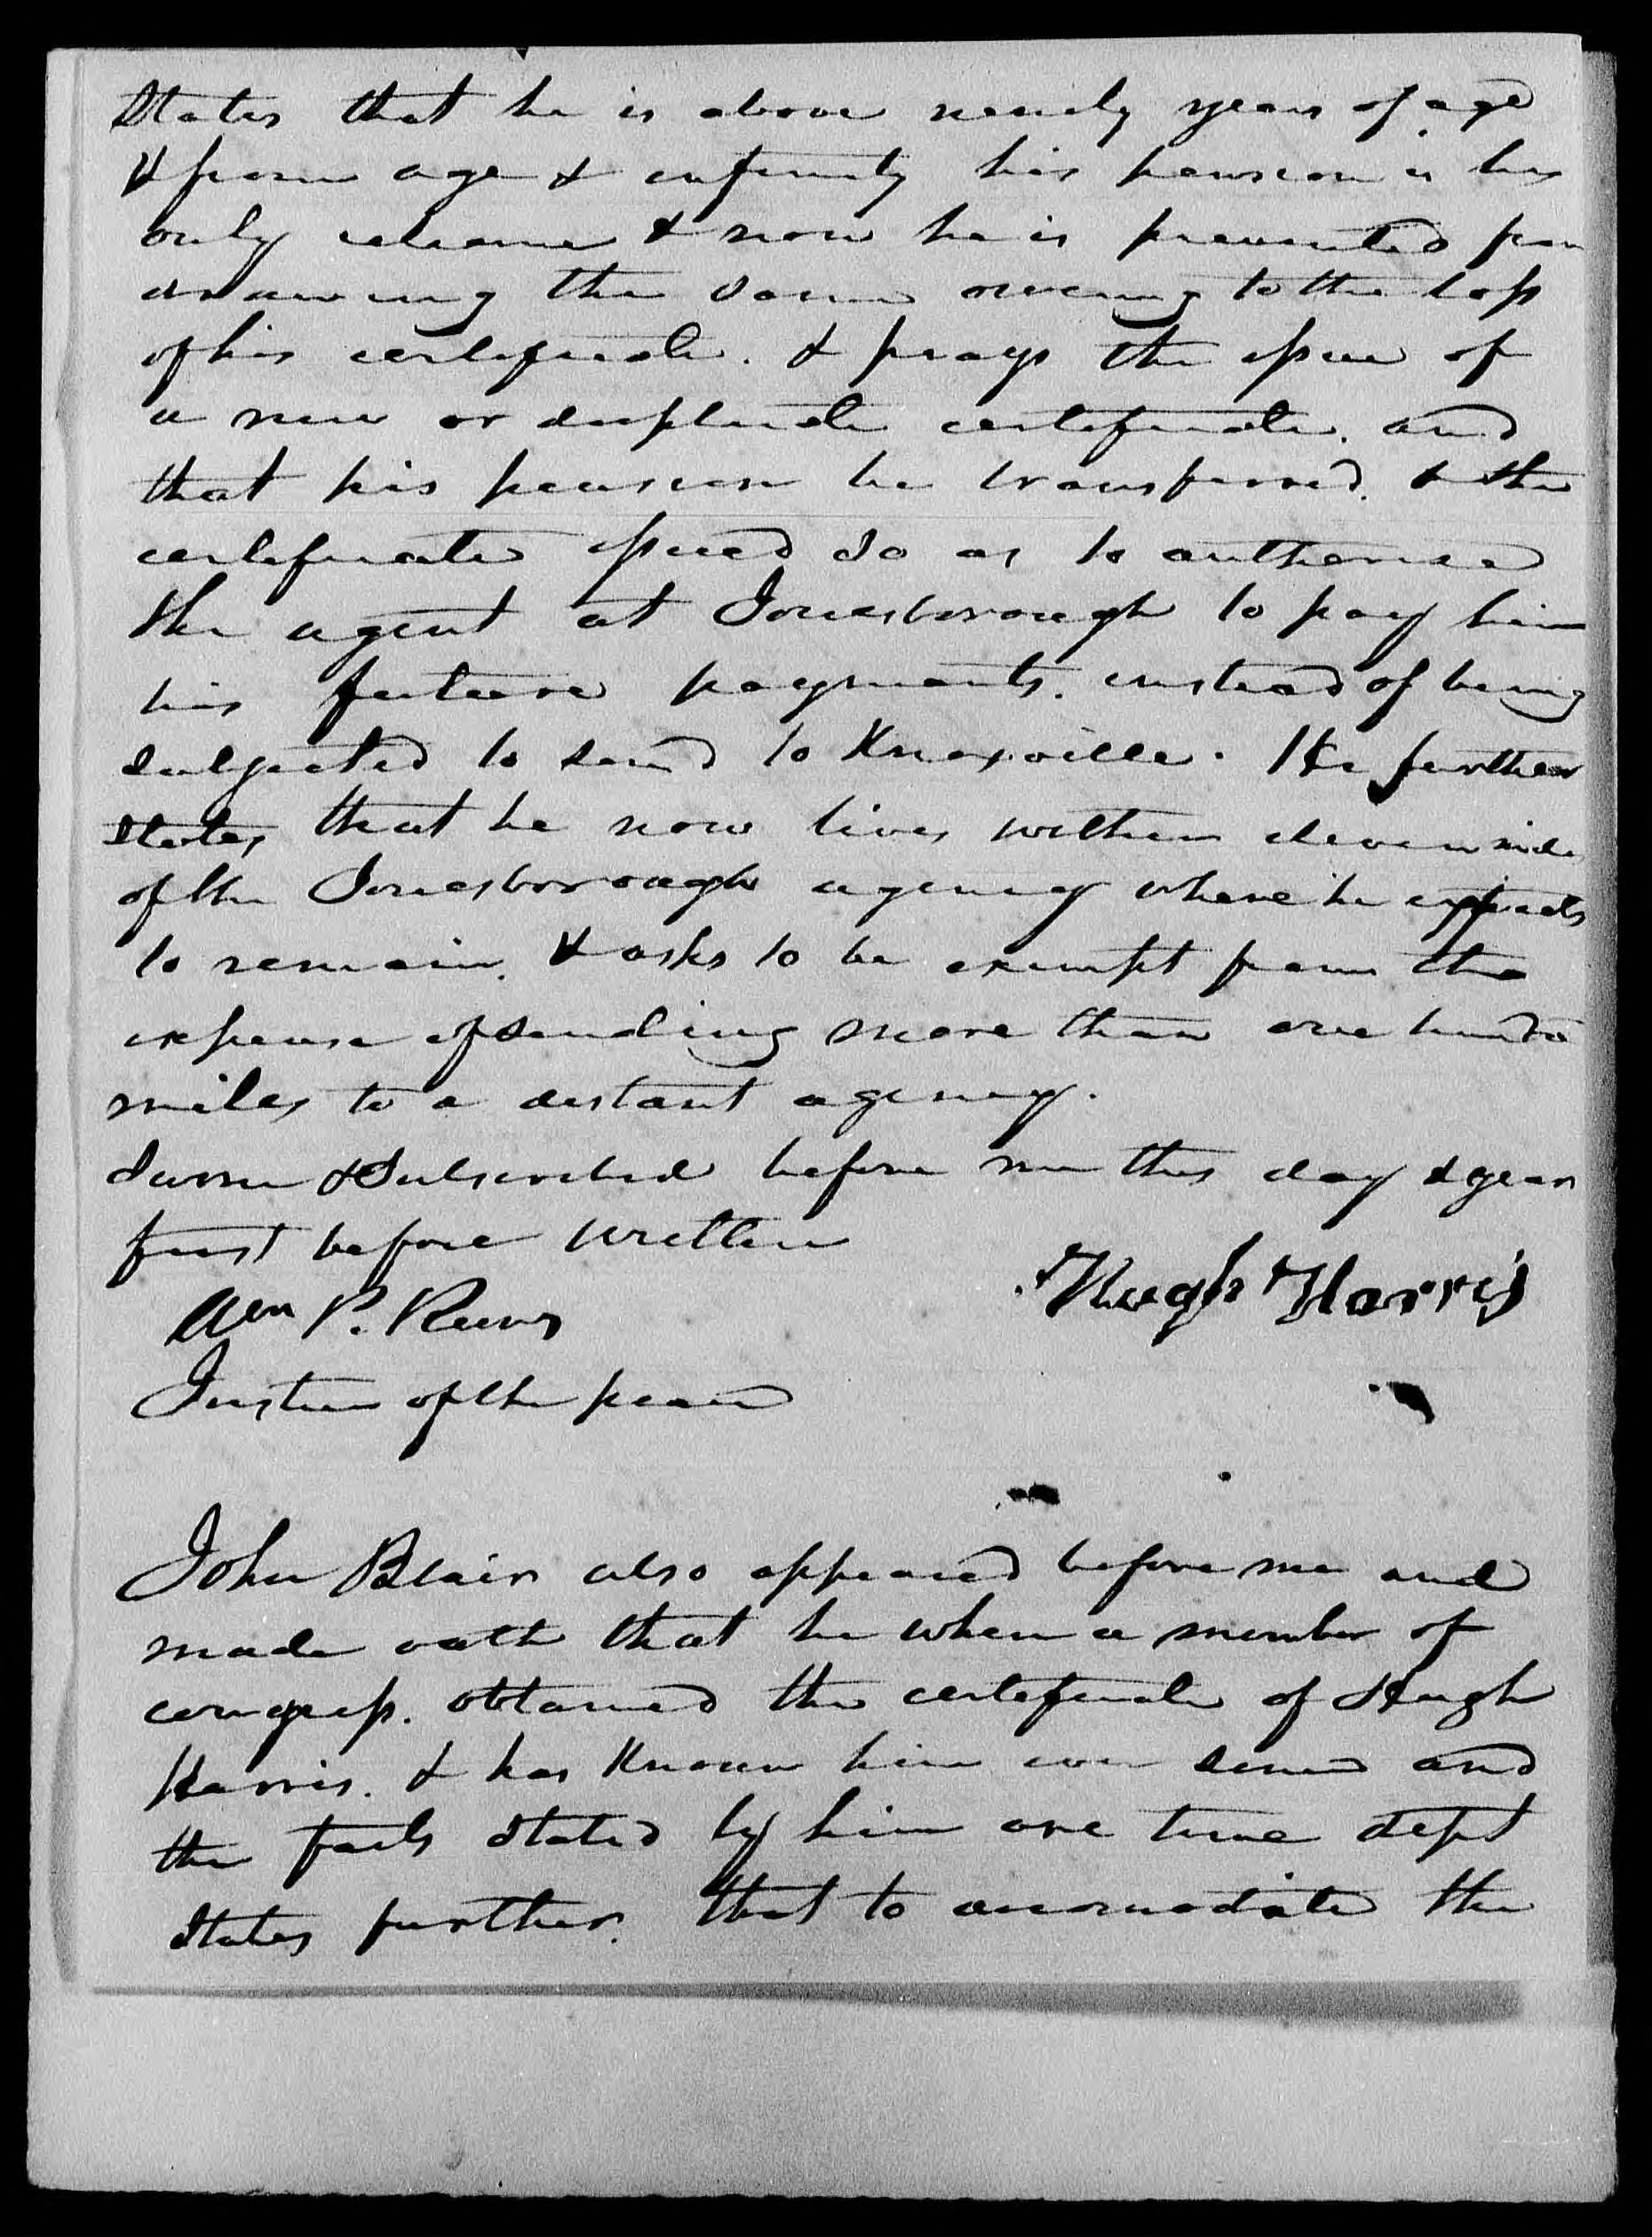 States that he is above ninety years of age
& from age & infirmity his pension is his
only reliance & now he is prevented from
drawing the same oweing to the loss
of his certificate. & prays the issue of
a new or duplicate certificate. and
that his pension be transferred. & the
certificate issued so as to authorise
the agent at Jonesborough to pay him
his future payments. instead of being
subjected to send to Knoxville. He further
states that he now lives within eleven miles
of the Jonesborough agency where he expects
to remain. & asks to be exempt from the
expense of sending more than one hundred
miles to a distant agency.
Sworn & Subscribed before me this day & year
first before written
Hugh Harris
Wm P. Reeves
Justice of the peace
John Blair also appeared before me and
made oath that he when a member of
congress. obtained the certificate of Hugh
Harris. & has known him ever since and
the facts stated by him are true dept
States further. that to accomodate the